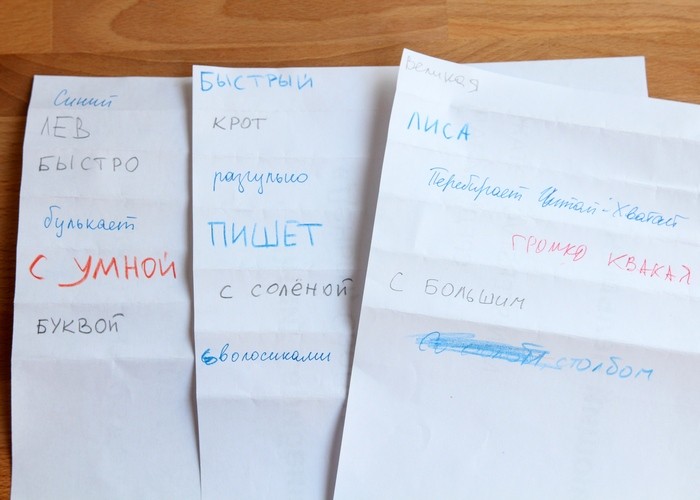 Синий
ЛЕВ
БЫСТРО
булькает
С УМНОЙ
БУКВОЙ
БЫСТРЫЙ
КРОТ
разгульно
ПИШЕТ
С СОЛЁНОЙ
волосиками
великая
ЛИСА
Перебирает Читай-Хватай
ГРОМКО КВАКАЯ
С БОЛЬШИМ
СТОЛБОМ